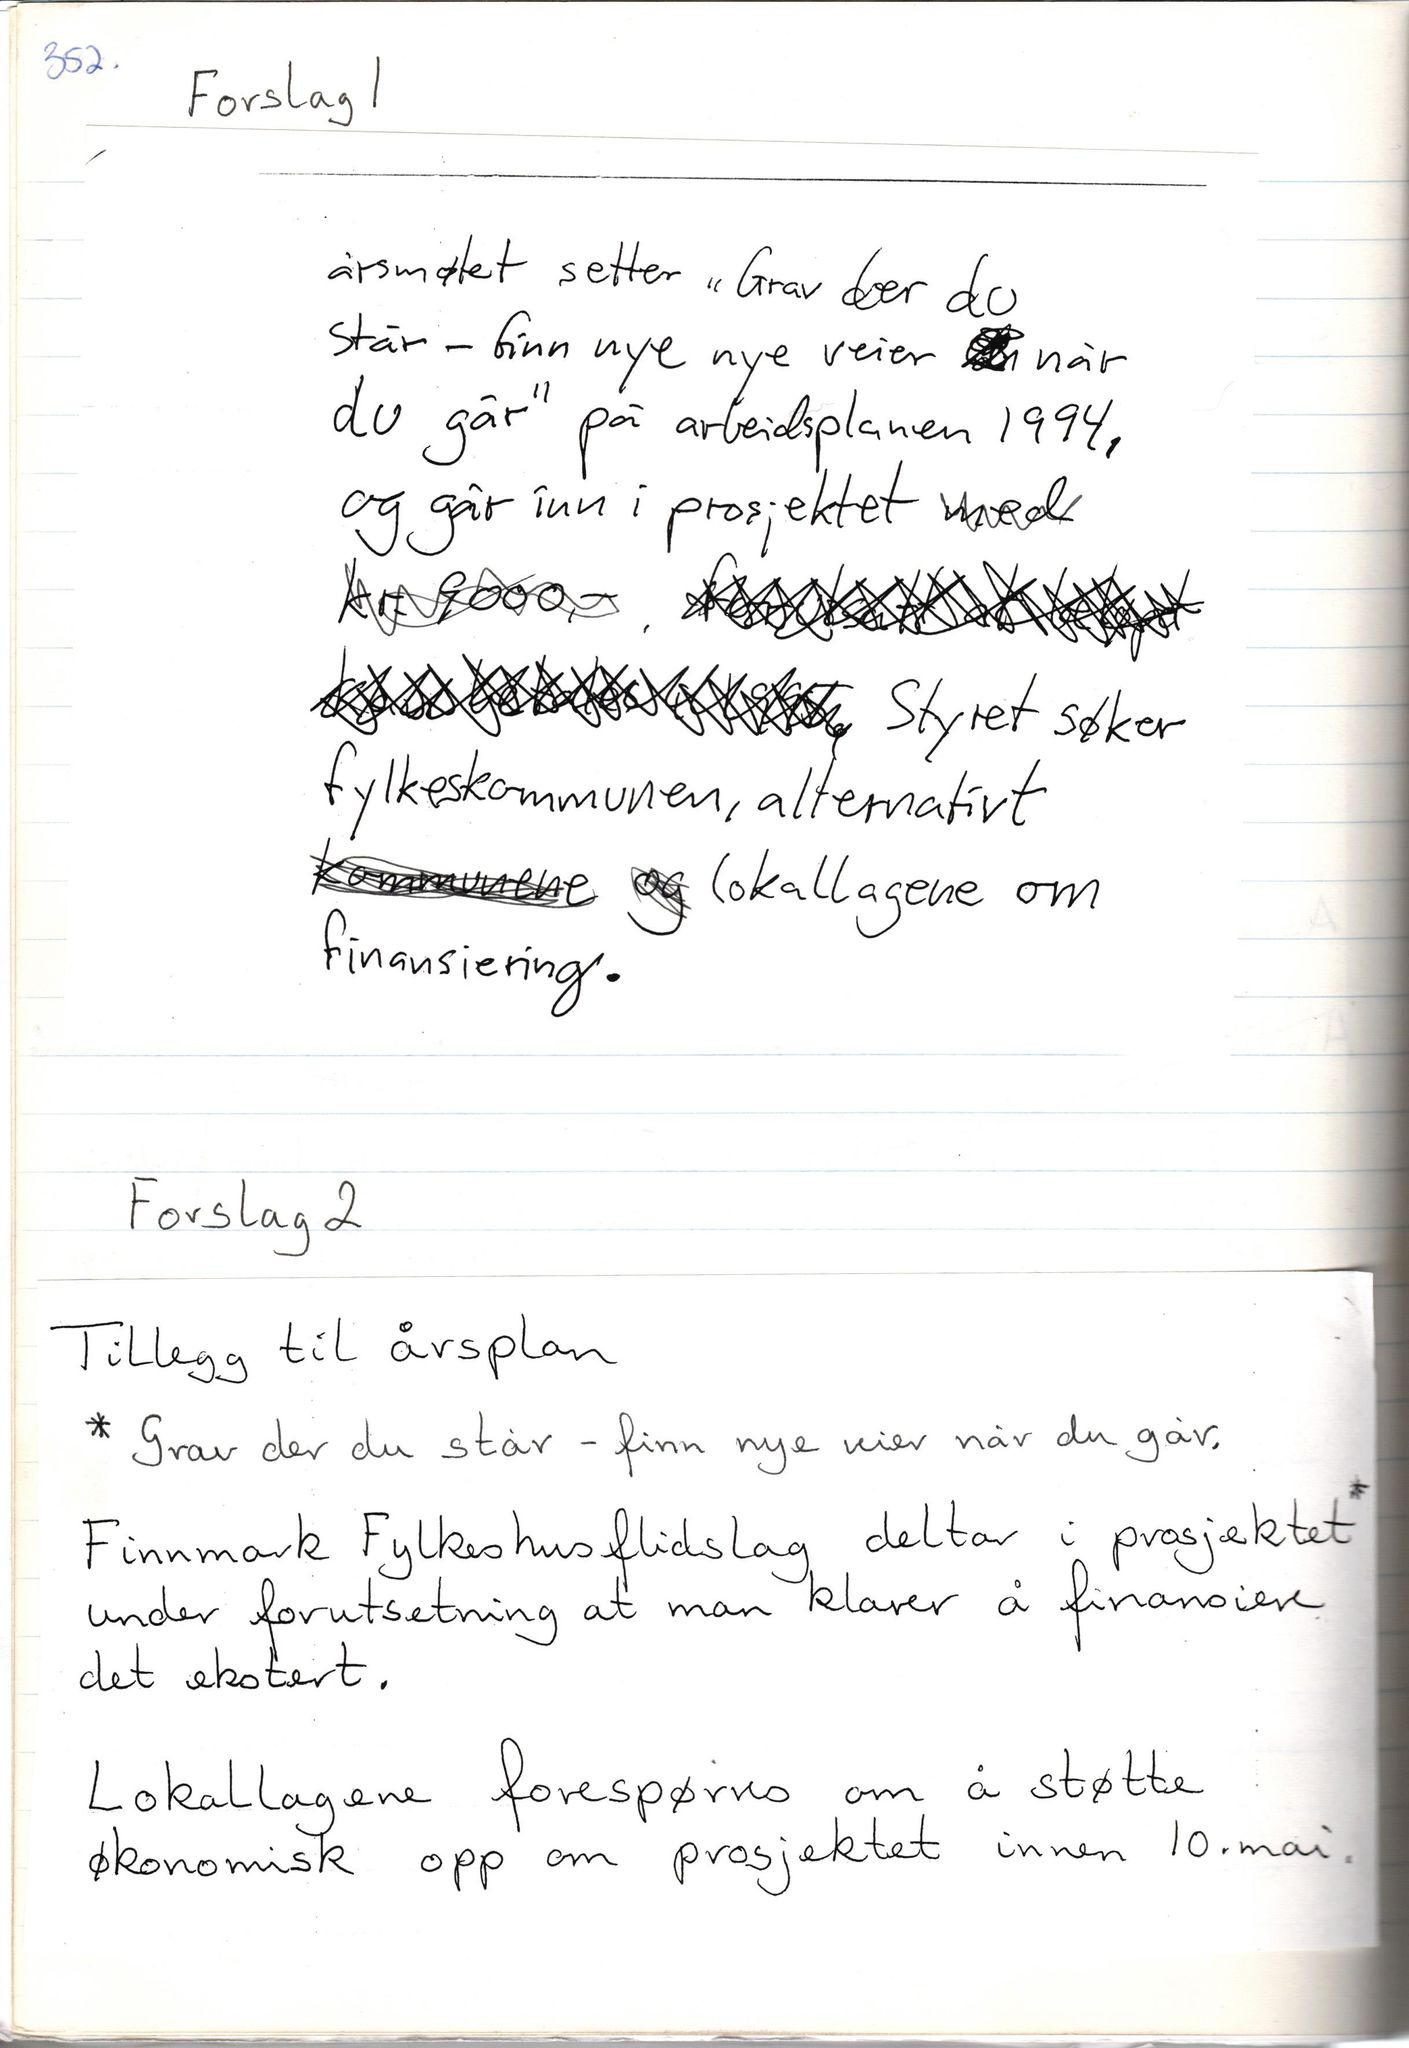 352.
Forslag 1
årsmøtet setter "Grav der du
står - finn nye nye veier når
du går" på arbeidsplanen 1994,
og går inn i prosjektet med
kr. 9000,-
Styret søker
fylkeskommunen, alternativt
kommunene og lokallagene om
finansiering.
Forslag 2
Tillegg til årsplan
* Grav der du står - finn nye veier når du går.
Finnmark Fylkeshusflidslag deltar i prosjektet*
under forutsetning at man klarer å finansiere
det eksternt.
Lokallagene forespørres om å støtte
økonomisk opp om prosjektet innen 10. mai.